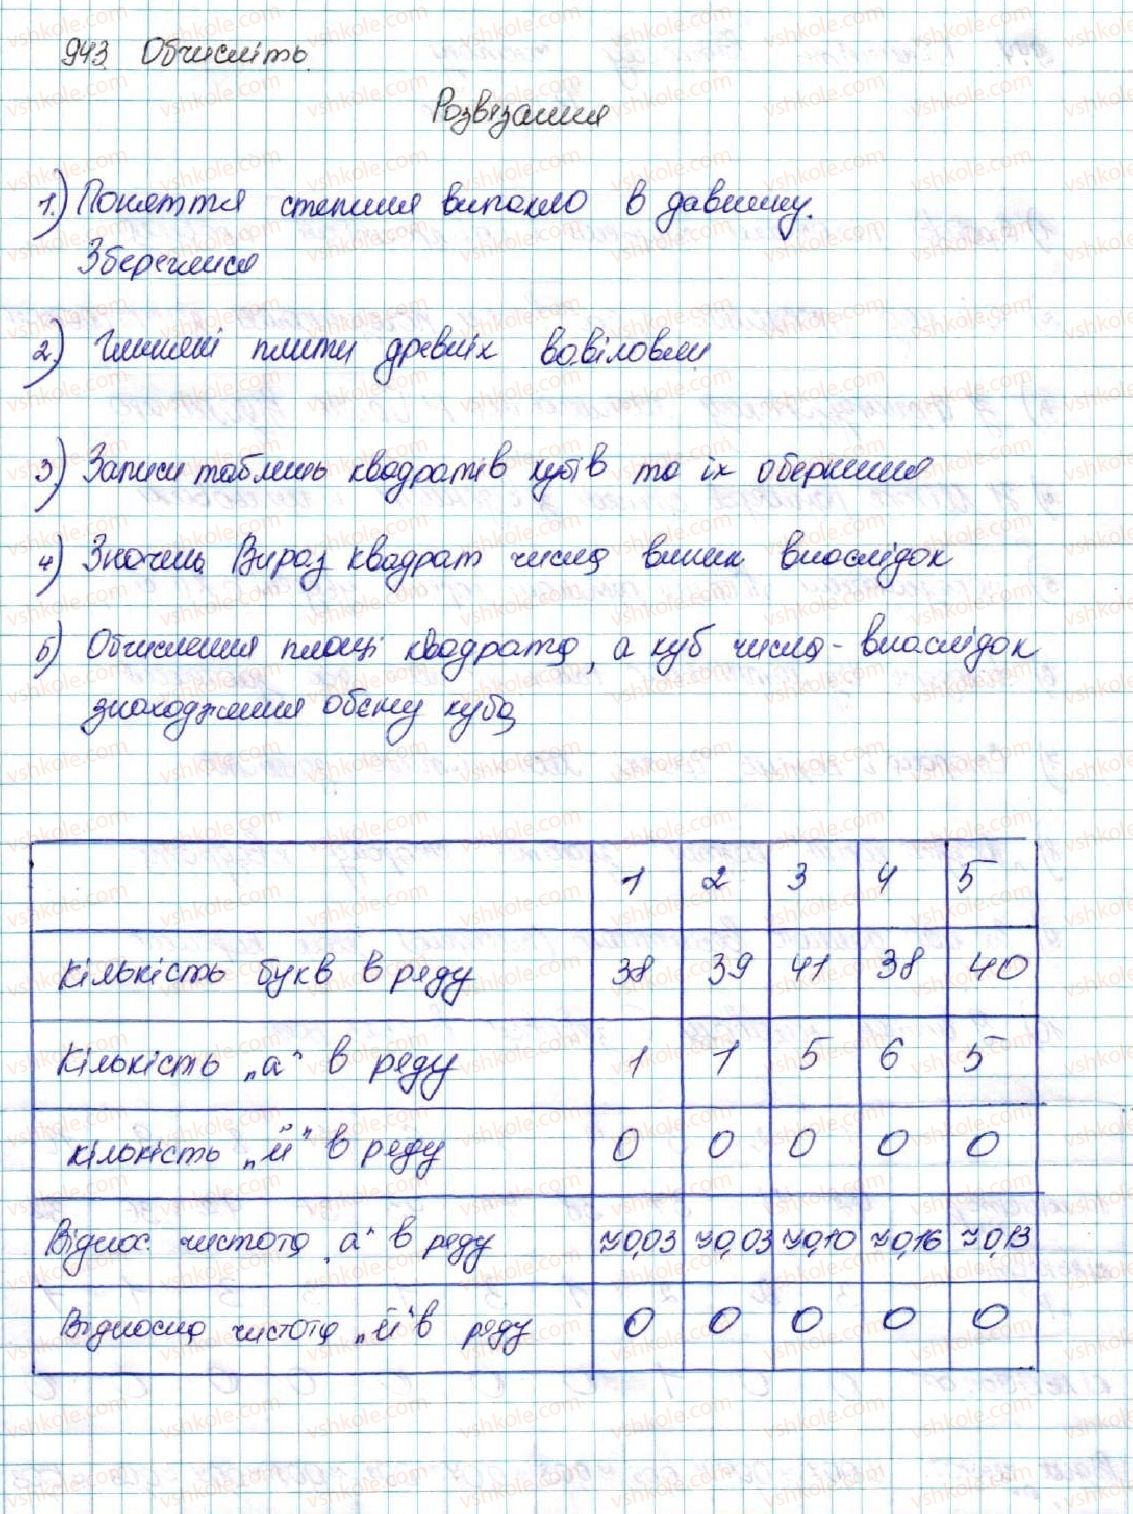 943. Обчисліть.
Розвязання
1.) Поняття степеня випакло в давнину.
Збереглися
2.) Глиняні плити древніх вавіловян
3) Записи таблиць квадратів кубів та їх обернення
4) Значень Вираз квадрат числа виник внаслідок
5) Обчислення площі квадрата, а куб числа - внаслідок
знаходження обєму куба
1 2 3 4 5
Кількість букв в ряду 38 39 41 38 40
Кількість „а" в ряду 1 1 5 6 5
кількість „й" в ряду 0 0 0 0 0
Віднос. чистота „а" в ряду ≈0,03 ≈0,03 ≈0,10 ≈0,16 ≈0,13
Відносна чистота „й" в ряду 0 0 0 0 0